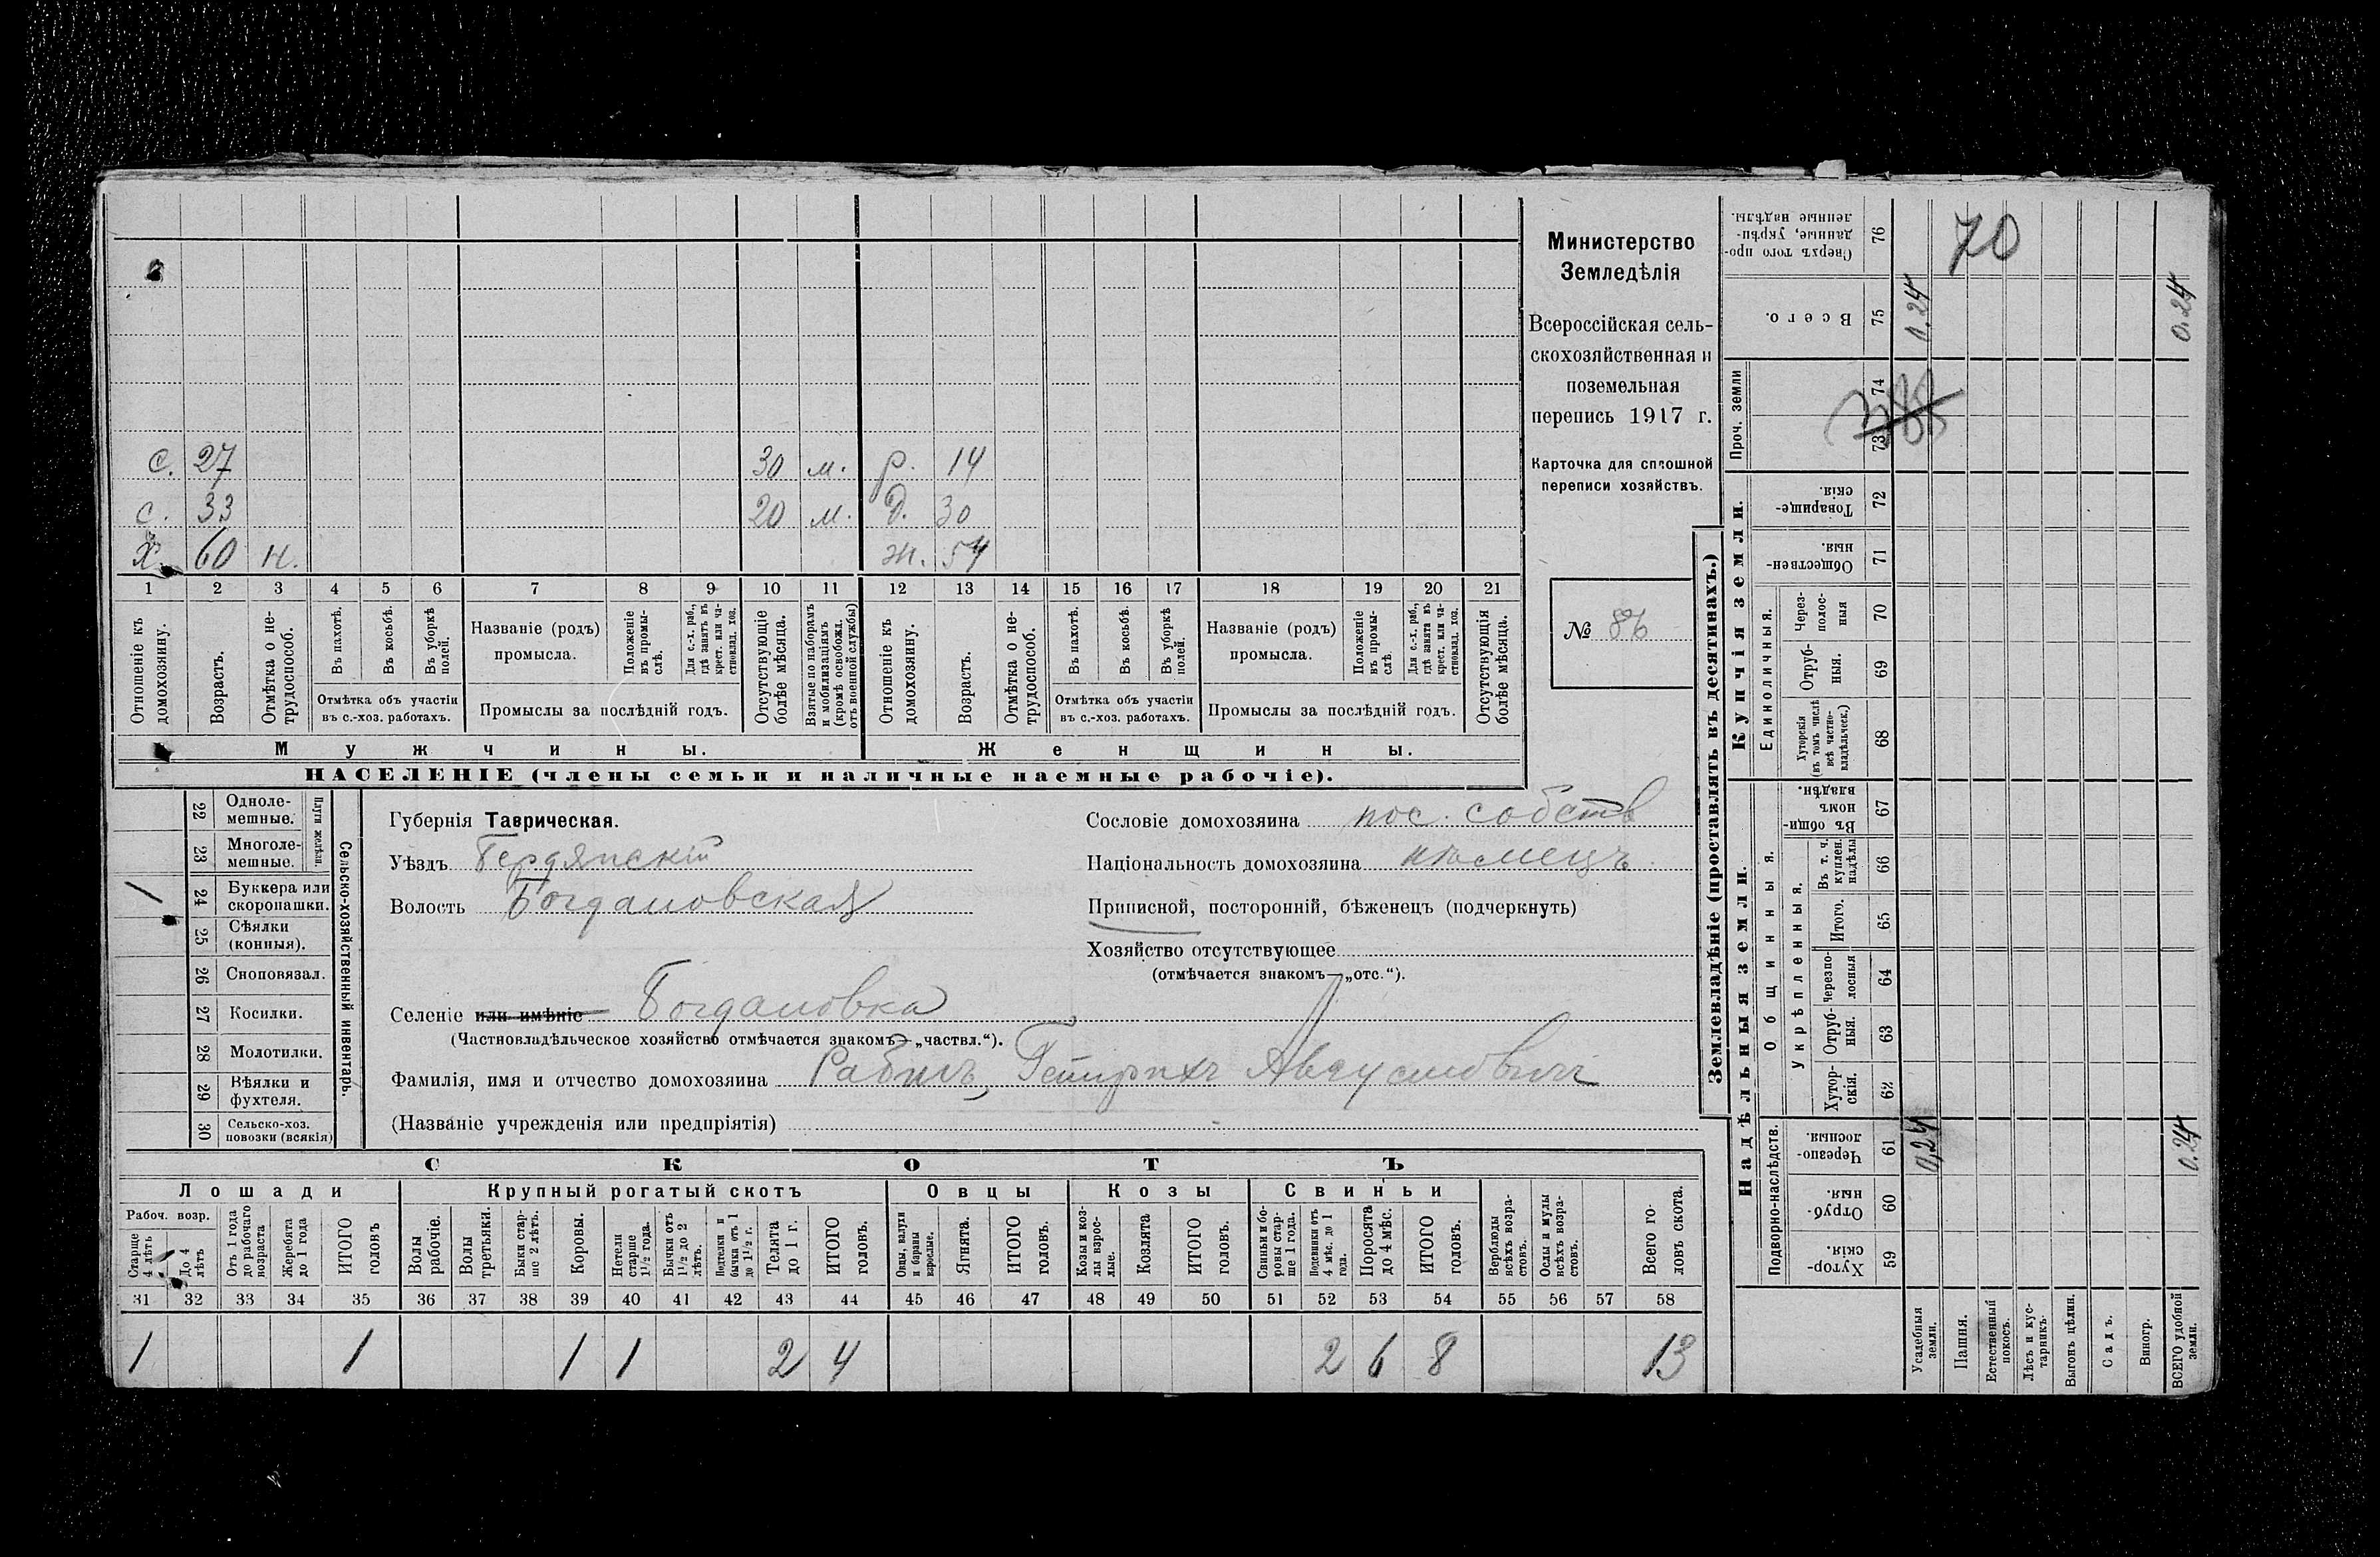 Министерство
Земледѣлія
Всероссійская сель-
скохозяйственная и
поземельная
перепись 1917 г.
Карточка для сплошной
переписи хозяйствъ.
№ 86
с. 27 30 м. р. 14
с. 33 20 м. д. 30
х. 60 н. ж. 54
1 2 3 4 5 6 7 8 9 10 11 12 13 14 15 16 17 18 19 20 21
Отношеніе къ домохозяину.
Возрастъ.
Отмѣтка о не-трудоспособ.
Въ пахотѣ.
Въ косьбѣ.
Въ уборкѣ полей.
Отмѣтка объ участіи въ с.-хоз. работахъ.
Названіе (родъ) промысла.
Положеніе въ промы-слѣ.
Для с.-х. раб., гдѣ занятъ въ крест. или ча-стновлад. хоз.
Промыслы за послѣдній годъ.
Отсутствующіе болѣе мѣсяца.
Взятые по наборамъ и мобилизаціямъ (кромѣ освобожд. отъ военной службы)
Отношеніе къ домохозяину.
Возрастъ.
Отмѣтка о не-трудоспособ.
Въ пахотѣ.
Въ косьбѣ.
Въ уборкѣ полей.
Отмѣтка объ участіи въ с.-хоз. работахъ.
Названіе (родъ) промысла.
Положеніе въ промы-слѣ.
Для с.-х. раб., гдѣ занята въ крест. или ча-стновлад. хоз.
Промыслы за послѣдній годъ.
Отсутствующія болѣе мѣсяца.
Мужчины. Женщины.
НАСЕЛЕНІЕ (члены семьи и наличные наемные рабочіе).
Сельско-хозяйственный инвентарь.
Плуги желѣзн.
22 Одноле-мешные.
23 Многоле-мешные.
24 Буккера или скоропашки. 1
25 Сѣялки (конныя).
26 Сноповязал.
27 Косилки.
28 Молотилки.
29 Вѣялки и фухтеля.
30 Сельско-хоз. повозки (всякія)
Губернія Таврическая.
Уѣздъ Бердянскій
Волость Богдановская
Селеніе или имѣніе Богдановка
(Частновладѣльческое хозяйство отмѣчается знакомъ—„частвл.“).
Фамилія, имя и отчество домохозяина Генрихъ Августовичъ
(Названіе учрежденія или предпріятія)
Сословіе домохозяина пос. собств
Національность домохозяина нѣмецъ.
Приписной, посторонній, бѣженецъ (подчеркнуть)
Хозяйство отсутствующее
(отмѣчается знакомъ—„отс.“).
СКОТЪ
Лошади Крупный рогатый скотъ Овцы Козы Свиньи
Рабоч. возр.
Старше 4 лѣтъ
До 4 лѣтъ
Отъ 1 года до рабочаго возраста
Жеребята до 1 года
ИТОГО головъ
Волы рабочіе.
Волы третьяки.
Быки стар-ше 2 лѣтъ.
Коровы.
Нетели старше 1½ года.
Бычки отъ 1½ до 2 лѣтъ.
Подтелки и бычки отъ 1 до 1½ г.
Телята до 1 г.
ИТОГО головъ.
Овцы, валухи и бараны взрослые.
Ягнята.
ИТОГО головъ.
Козы и коз-лы взрос-лые.
Козлята
ИТОГО головъ.
Свиньи и бо-ровы стар-ше 1 года.
Подсвинки отъ 4 мѣс. до 1 года.
Поросята до 4 мѣс.
ИТОГО головъ.
Верблюды всѣхъ возра-стовъ.
Ослы и мулы всѣхъ возра-стовъ.
Всего го-ловъ скота.
31 32 33 34 35 36 37 38 39 40 41 42 43 44 45 46 47 48 49 50 51 52 53 54 55 56 57 58
1 1 1 1 2 4 2 6 8 13
Землевладѣніе (проставлять въ десятинахъ.)
Надѣльныя земли.
Подворно-наслѣдств.
Хутор-скія. 59
Отруб-ныя. 60
Черезпо-лосныя. 61 0,24 0.24
Общинныя.
Укрѣпленныя.
Хутор-скія. 62
Отруб-ныя. 63
Черезпо-лосныя 64
Итого. 65
Въ т. ч. куплен. надѣлы 66
Въ общи-номъ владѣн. 67
Купчія земли.
Единоличныя.
Хуторскія (въ томъ числѣ всѣ частно-владѣльческ.) 68
Отруб-ныя. 69
Через-полос-ныя 70
Обществен-ныя. 71
Товарище-скія. 72
Проч. земли
73 74
Всего. 75 0,24 0.24
Сверхъ того про-данные, укрѣп-ленные надѣлы. 76
70
Усадебныя земли.
Пашня.
Естественный покосъ.
Лѣсъ и кус-тарникъ.
Выгонъ цѣлин.
Садъ.
Виногр.
ВСЕГО удобной земли.